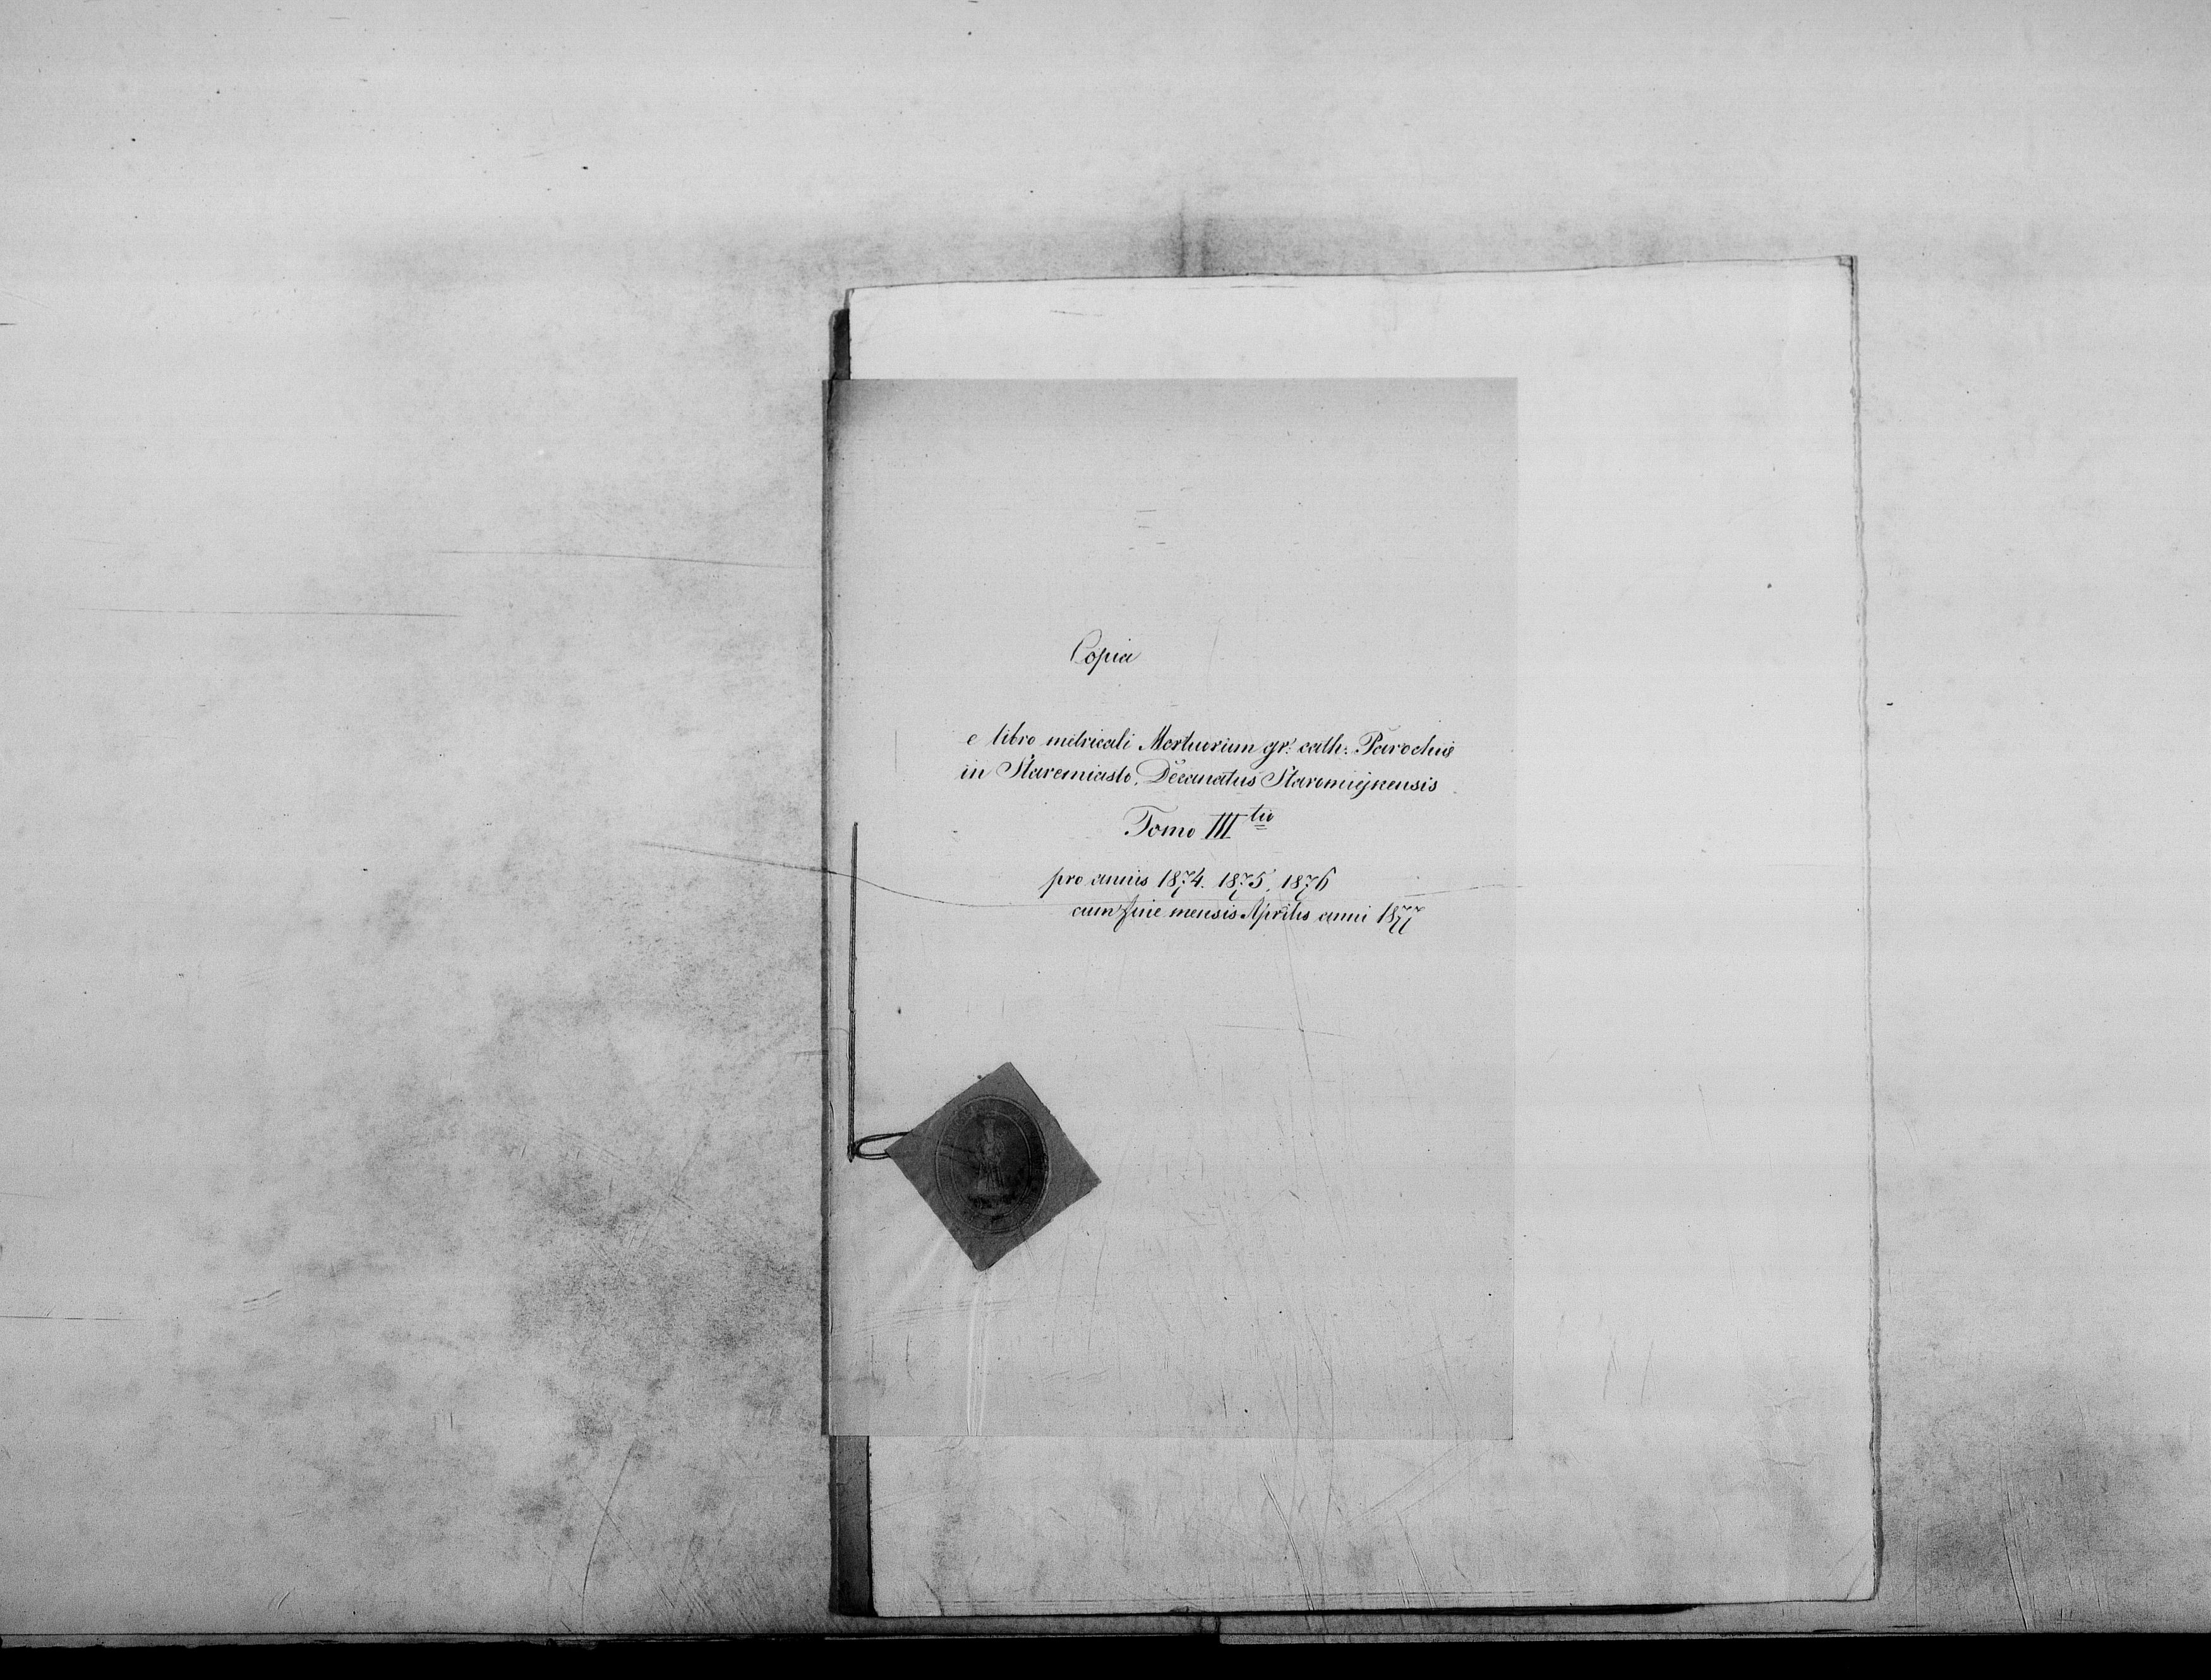 Copia
e libro metricali Mortuorum gr: cath: Parochiæ
in Staremiasto, Decanatus Staromiejscensis
Tomo III tio
pro annis 1874. 1875, 1876
cum fine mensis Aprilis anni 1877